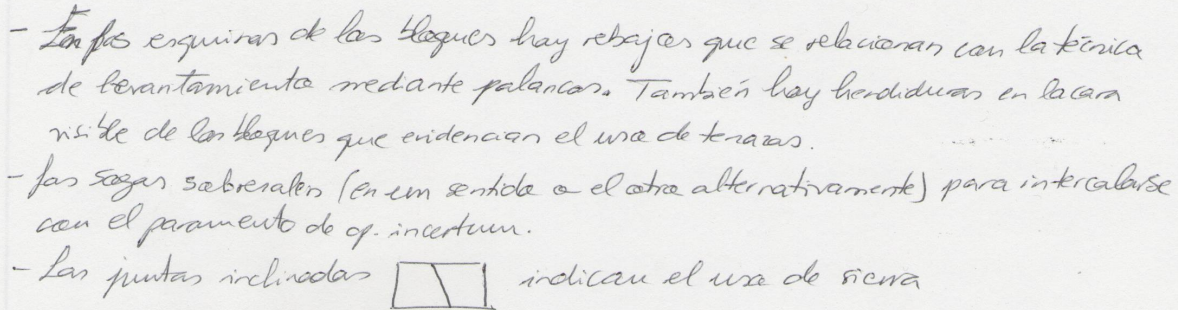 - En las esquinas de los bloques hay rebajes que se relacionan con la técnica
de levantamiento mediante palancas. También hay hendiduras en la cara
visible de los bloques que evidencian el uso de tenazas.
- Las sogas sobresalen (en un sentido o el otro alternativamente) para intercalarse
con el paramento de op. incertum.
- Las juntas inclinadas indican el uso de sierra